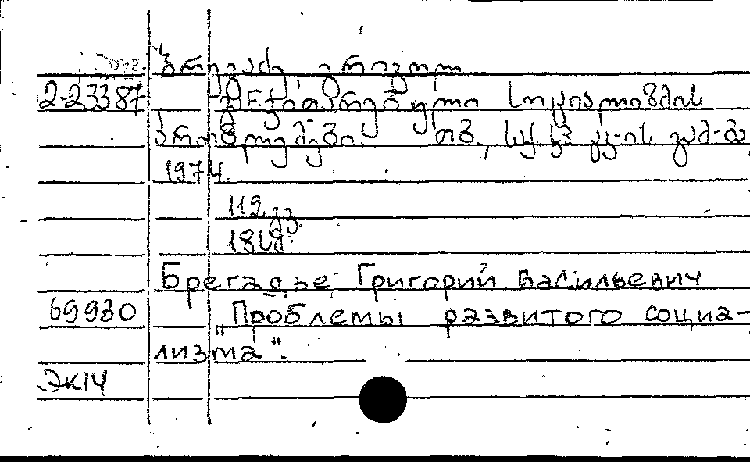 ბრეგაძე, გრიგოლ
2-23387 განვითარებული სოციალიზმის
პრობლემები. თბ., საქ. კპ ცკ-ის გამ-ბა,
1974.
112 გვ.
18 კ.
Брегадзе, Григорий Васильевич
69930 "Проблемы развитого социа-
лизма".
ЭК14